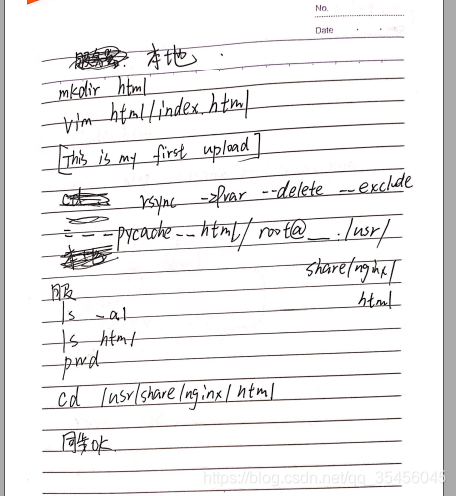 No.
Date
本地
mkdir html
vim html/index.html
[This is my first upload]
rsync -zlvar --delete --exclude
pycache-- html/ root@__:/usr/
share/nginx/
html
服
ls -al
ls html
pwd
cd /usr/share/nginx/html
同步OK
https://blog.csdn.net/qq_35456045